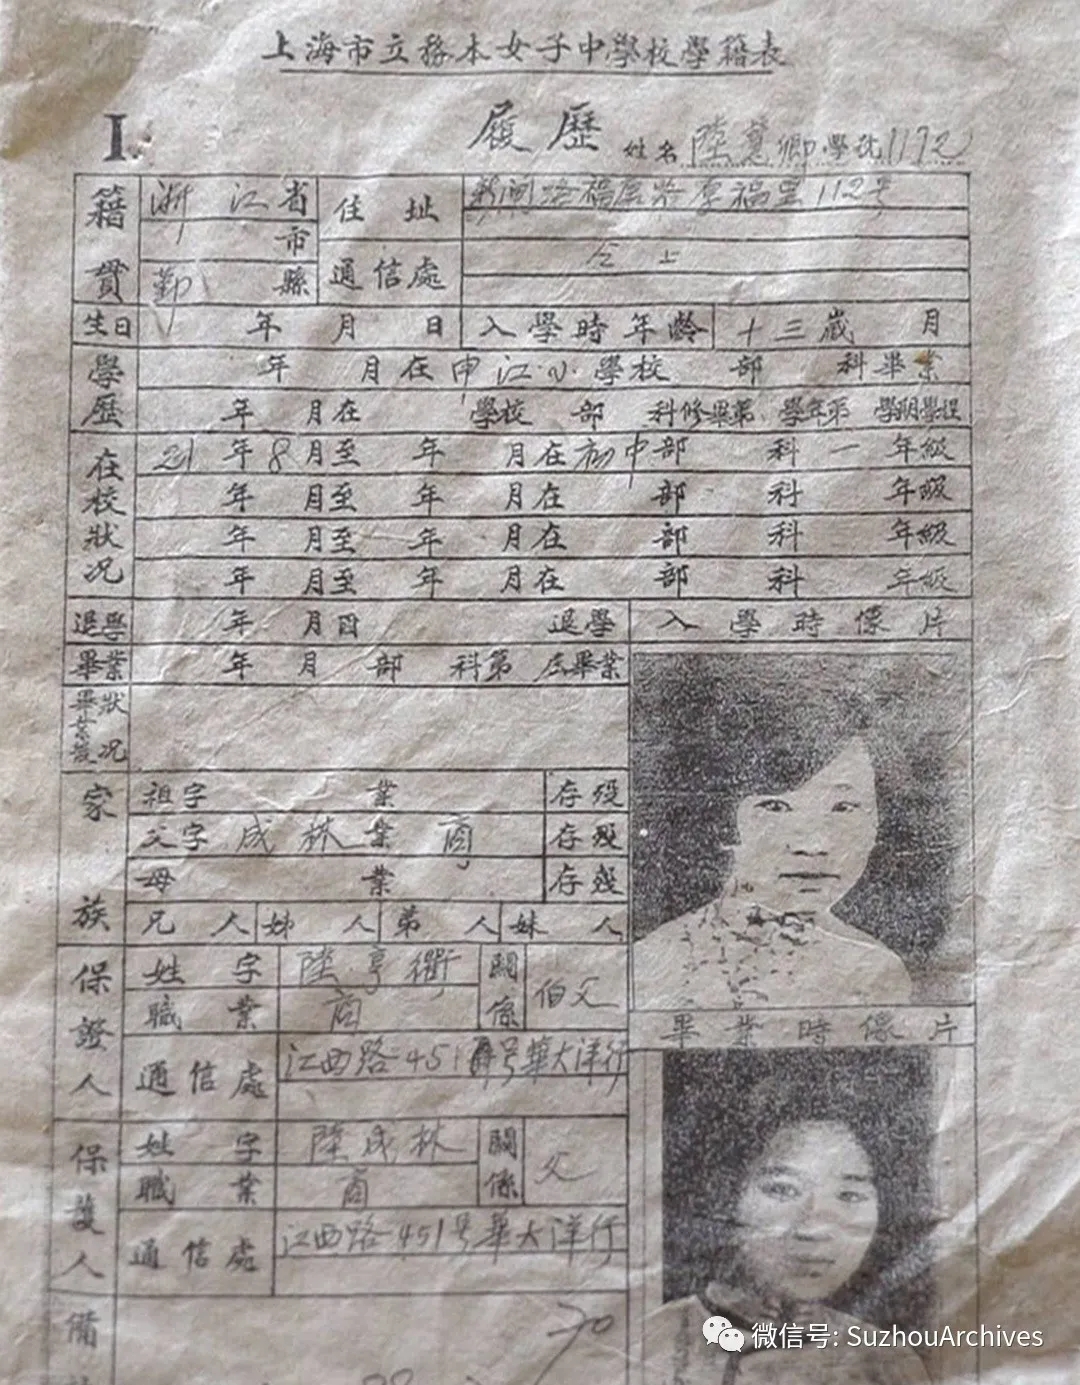 上海市立務本女子中學校學籍表
I. 履歷 姓名 陸慧卿 學號 1192
籍貫 浙江省 市 鄞縣 住址 新閘路福康路厚福里112号
通信處 仝上
生日 年 月 日 入學時年齡 十三歲 月
學歷 年 月在申江小學校 部 科畢業
年 月在 學校 部 科修畢第 學年第 學期學程
在校狀況 21年8月至 年 月在初中部 科一年級
年 月至 年 月在 部 科 年級
年 月至 年 月在 部 科 年級
年 月至 年 月在 部 科 年級
退學 年 月因 退學 入學時像片
畢業 年 月 部 科第 屆畢業
畢業後狀况
家族 祖字 業 存歿
父字 成林 業 商 存歿
母 業 存歿
兄 人 姊 人 弟 人 妹 人
保證人 姓字 陸亨衢 關係 伯父
職業 商
畢業時像片
通信處 江西路451号華大洋行
保護人 姓字 陸成林 關係 父
職業 商
通信處 江西路451号華大洋行
備
微信号: SuzhouArchives